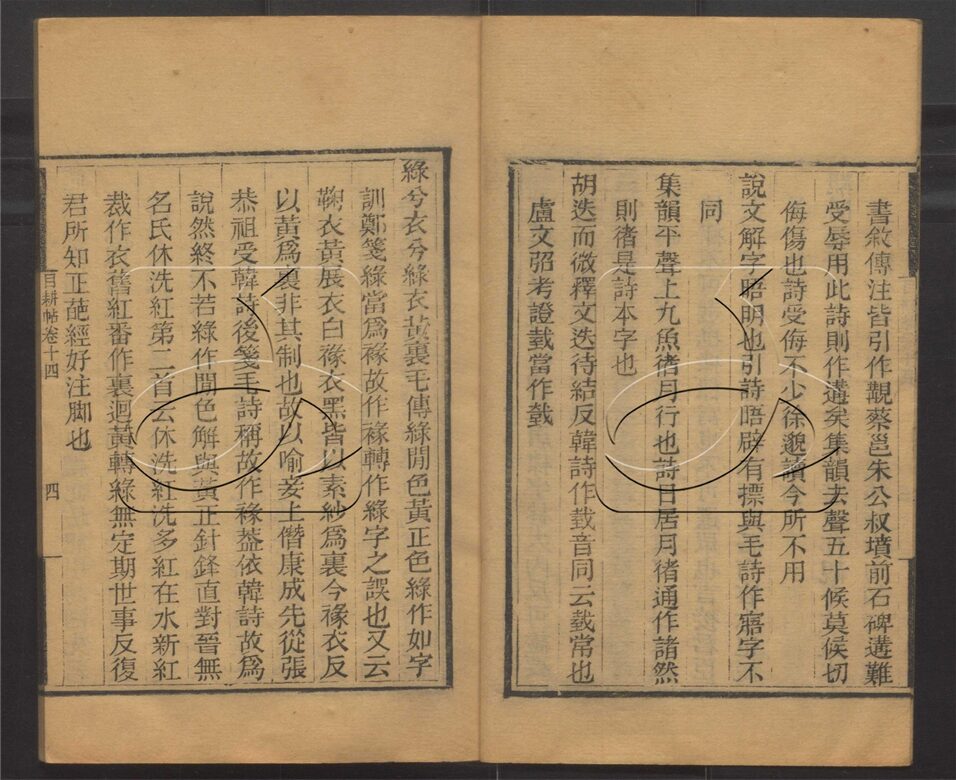 書敘傳注皆引作觀蔡邕朱公叔墳前石碑遘難
受辱用此詩則作遘矣集韻去聲五十候莫候切
侮傷也詩受侮不少徐邈讀今所不用
說文解字晤明也引詩晤辟有摽與毛詩作寤字不
同
集韻平聲上九魚㣥月行也詩日居月㣥通作諸然
則㣥是詩本字也
胡迭而微釋文迭待結反韓詩作臷音同云臷常也
盧文弨考證臷當作䳄
綠兮衣兮綠衣黃裏毛傳綠閒色黃正色綠作如字
訓鄭箋綠當爲褖故作褖轉作綠字之誤也又云
鞠衣黃展衣白褖衣黑皆以素紗爲裏今褖衣反
以黃爲裏非其制也故以喻妾上僭康成先從張
恭祖受韓詩後箋毛詩稱故作褖葢依韓詩故爲
說然終不若綠作閒色解與黃正針鋒直對晉無
名氏休洗紅第二首云休洗紅洗多紅在水新紅
裁作衣舊紅番作裏迴黃轉綠無定期世事反復
君所知正葩經好注脚也
目耕帖卷十四
四